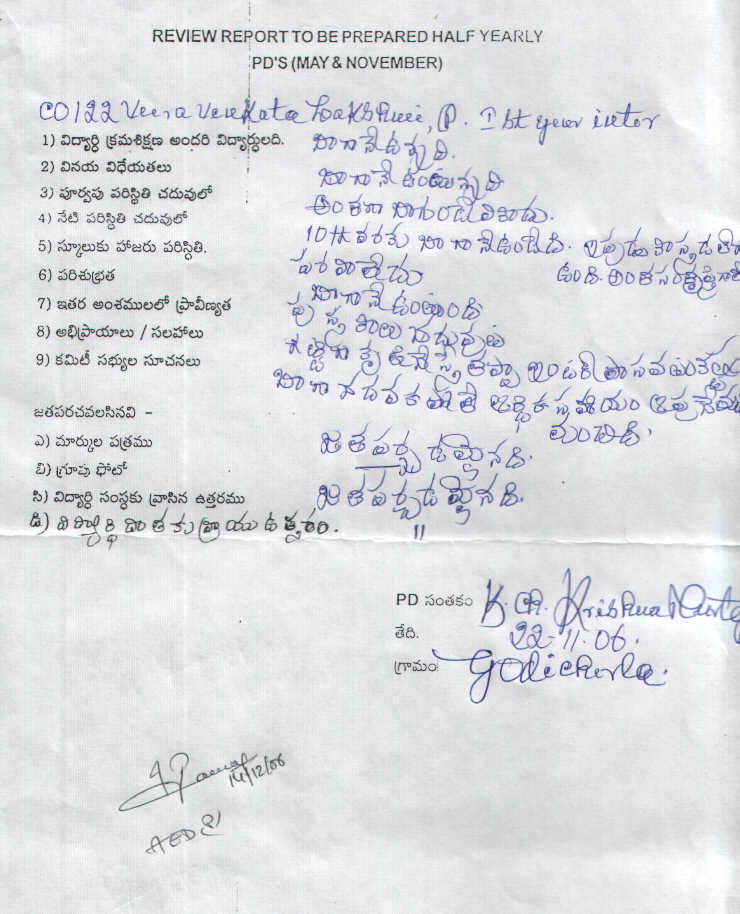 REVIEW REPORT TO BE PREPARED HALF YEARLY
PD'S (MAY & NOVEMBER)
CO122 Veera Venkata Lakshmi, P. Ist year inter
1) విద్యార్థి క్రమశిక్షణ అందరి విద్యార్థులది. బాగానే ఉన్నది.
2) వినయ విధేయతలు బాగానే ఉంటున్నది
3) పూర్వపు పరిస్థితి చదువులో అంతగా
4) నేటి పరిస్థితి చదువులో 10th వరకు బాగానే ఉండేది. ఇపుడు
5) స్కూలుకు హాజరు పరిస్థితి. ఉంది. అంత
6) పరిశుభ్రత బాగానే ఉంటుంది
7) ఇతర అంశములలో ప్రావీణ్యత పుస్తకాలు చదువుట
8) అభిప్రాయాలు / సలహాలు తప్పా
9) కమిటీ సభ్యుల సూచనలు బాగా చదవకపోతే ఆర్థిక సహాయం
మంచిది.
జతపరచవలసినవి -
ఎ) మార్కుల పత్రము జతపర్చడమైనది.
బి) గ్రూపు ఫోటో
సి) విద్యార్థి సంస్థకు వ్రాసిన ఉత్తరము జతపర్చడమైనది.
డి) విద్యార్థి దాతకు వ్రాయు ఉత్తరం. "
PD సంతకం K. Ch. Krishna Murty
తేది. 22-11-06.
గ్రామం Godicherla.
14/12/06
AED